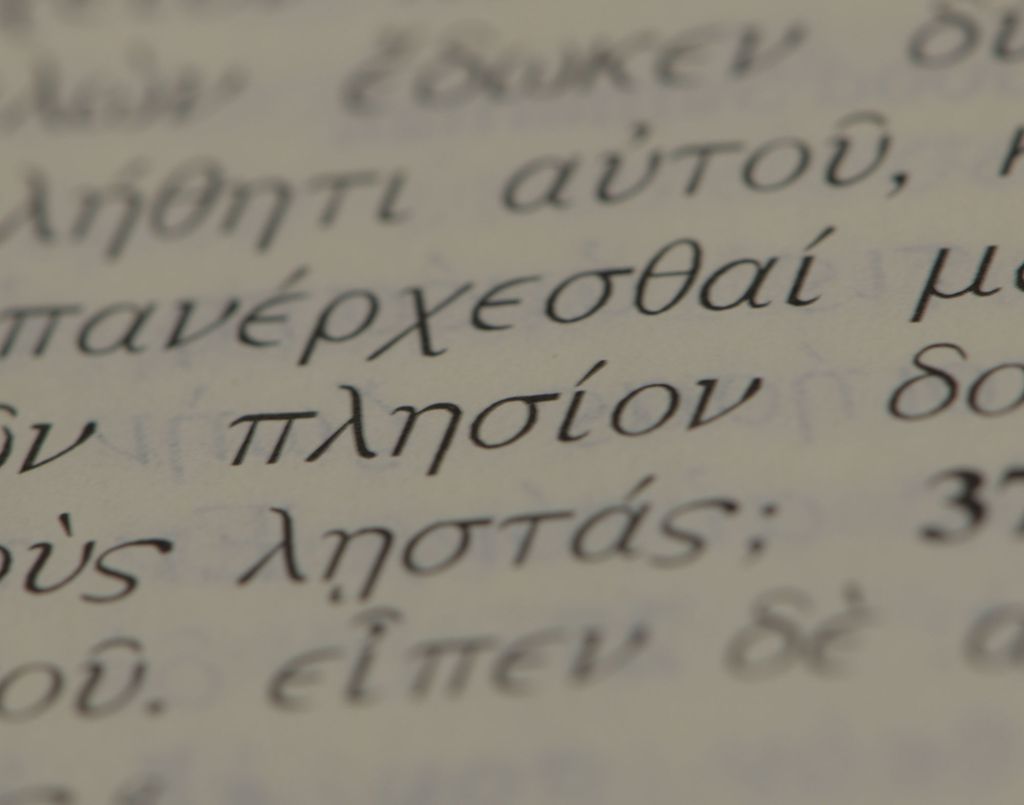 ἔδωκεν δύ
λήθητι αὐτοῦ, κ
πανέρχεσθαί με
ῶν πλησίον δο
οὺς λῃστάς; 37
οῦ. εἶπεν δὲ α